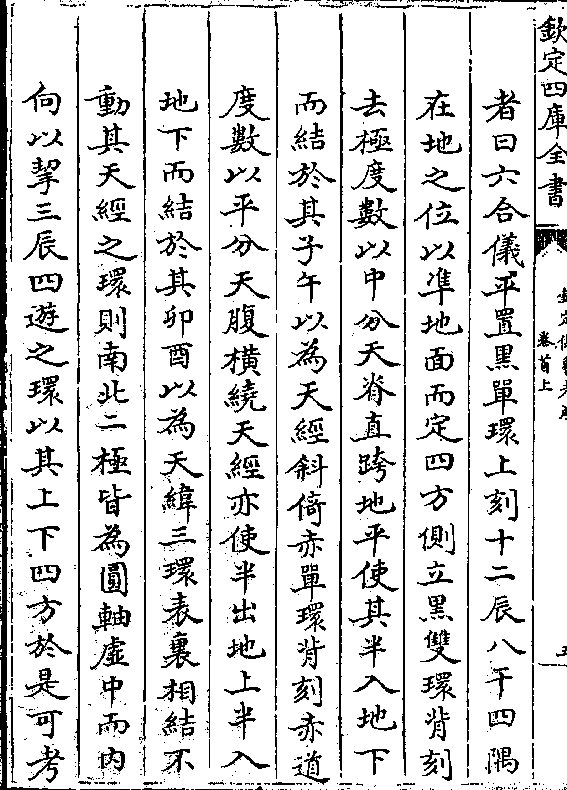 欽定四庫全書
卷首上
者曰六合儀平置黑單環上刻十二辰八干四隅
在地之位以準地面而定四方側立黑雙環背刻
去極度數以中分天脊直跨地平使其半入地下
而結於其子午以為天經斜倚赤單環背刻赤道
度數以平分天腹橫繞天經亦使半出地上半入
地下而結於其卯酉以為天緯三環表裏相結不
動其天經之環則南北二極皆為圓軸虛中而內
向以挈三辰四遊之環以其上下四方於是可考